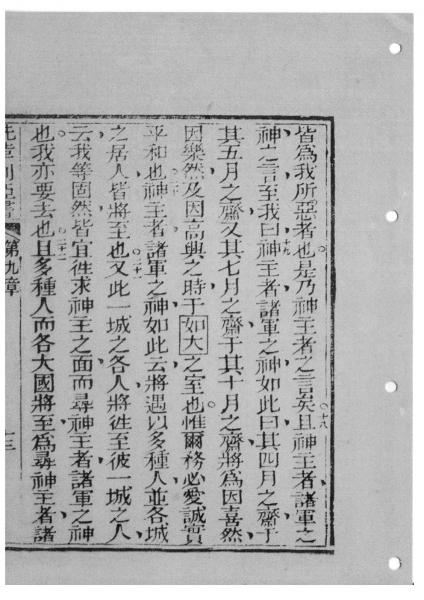 皆為我所惡者也是乃神主者之言矣○十八且神主者諸軍之
神之言至我曰○十九神主者諸軍之神如此曰其四月之齋于
其五月之齋又其七月之齋于其十月之齋將為因喜然
因樂然及因高興之時于如大之室也惟爾務必愛誠實
平和也○二十神主者諸軍之神如此云將遇以多種人並各城
之居人皆將至也○二十一又此一城之各人將徃至彼一城之人
云我等固然皆宜徃求神主之面而尋神主者諸軍之神
也我亦要去也○二十二且多種人而各大國將至為尋神主者諸
第九章